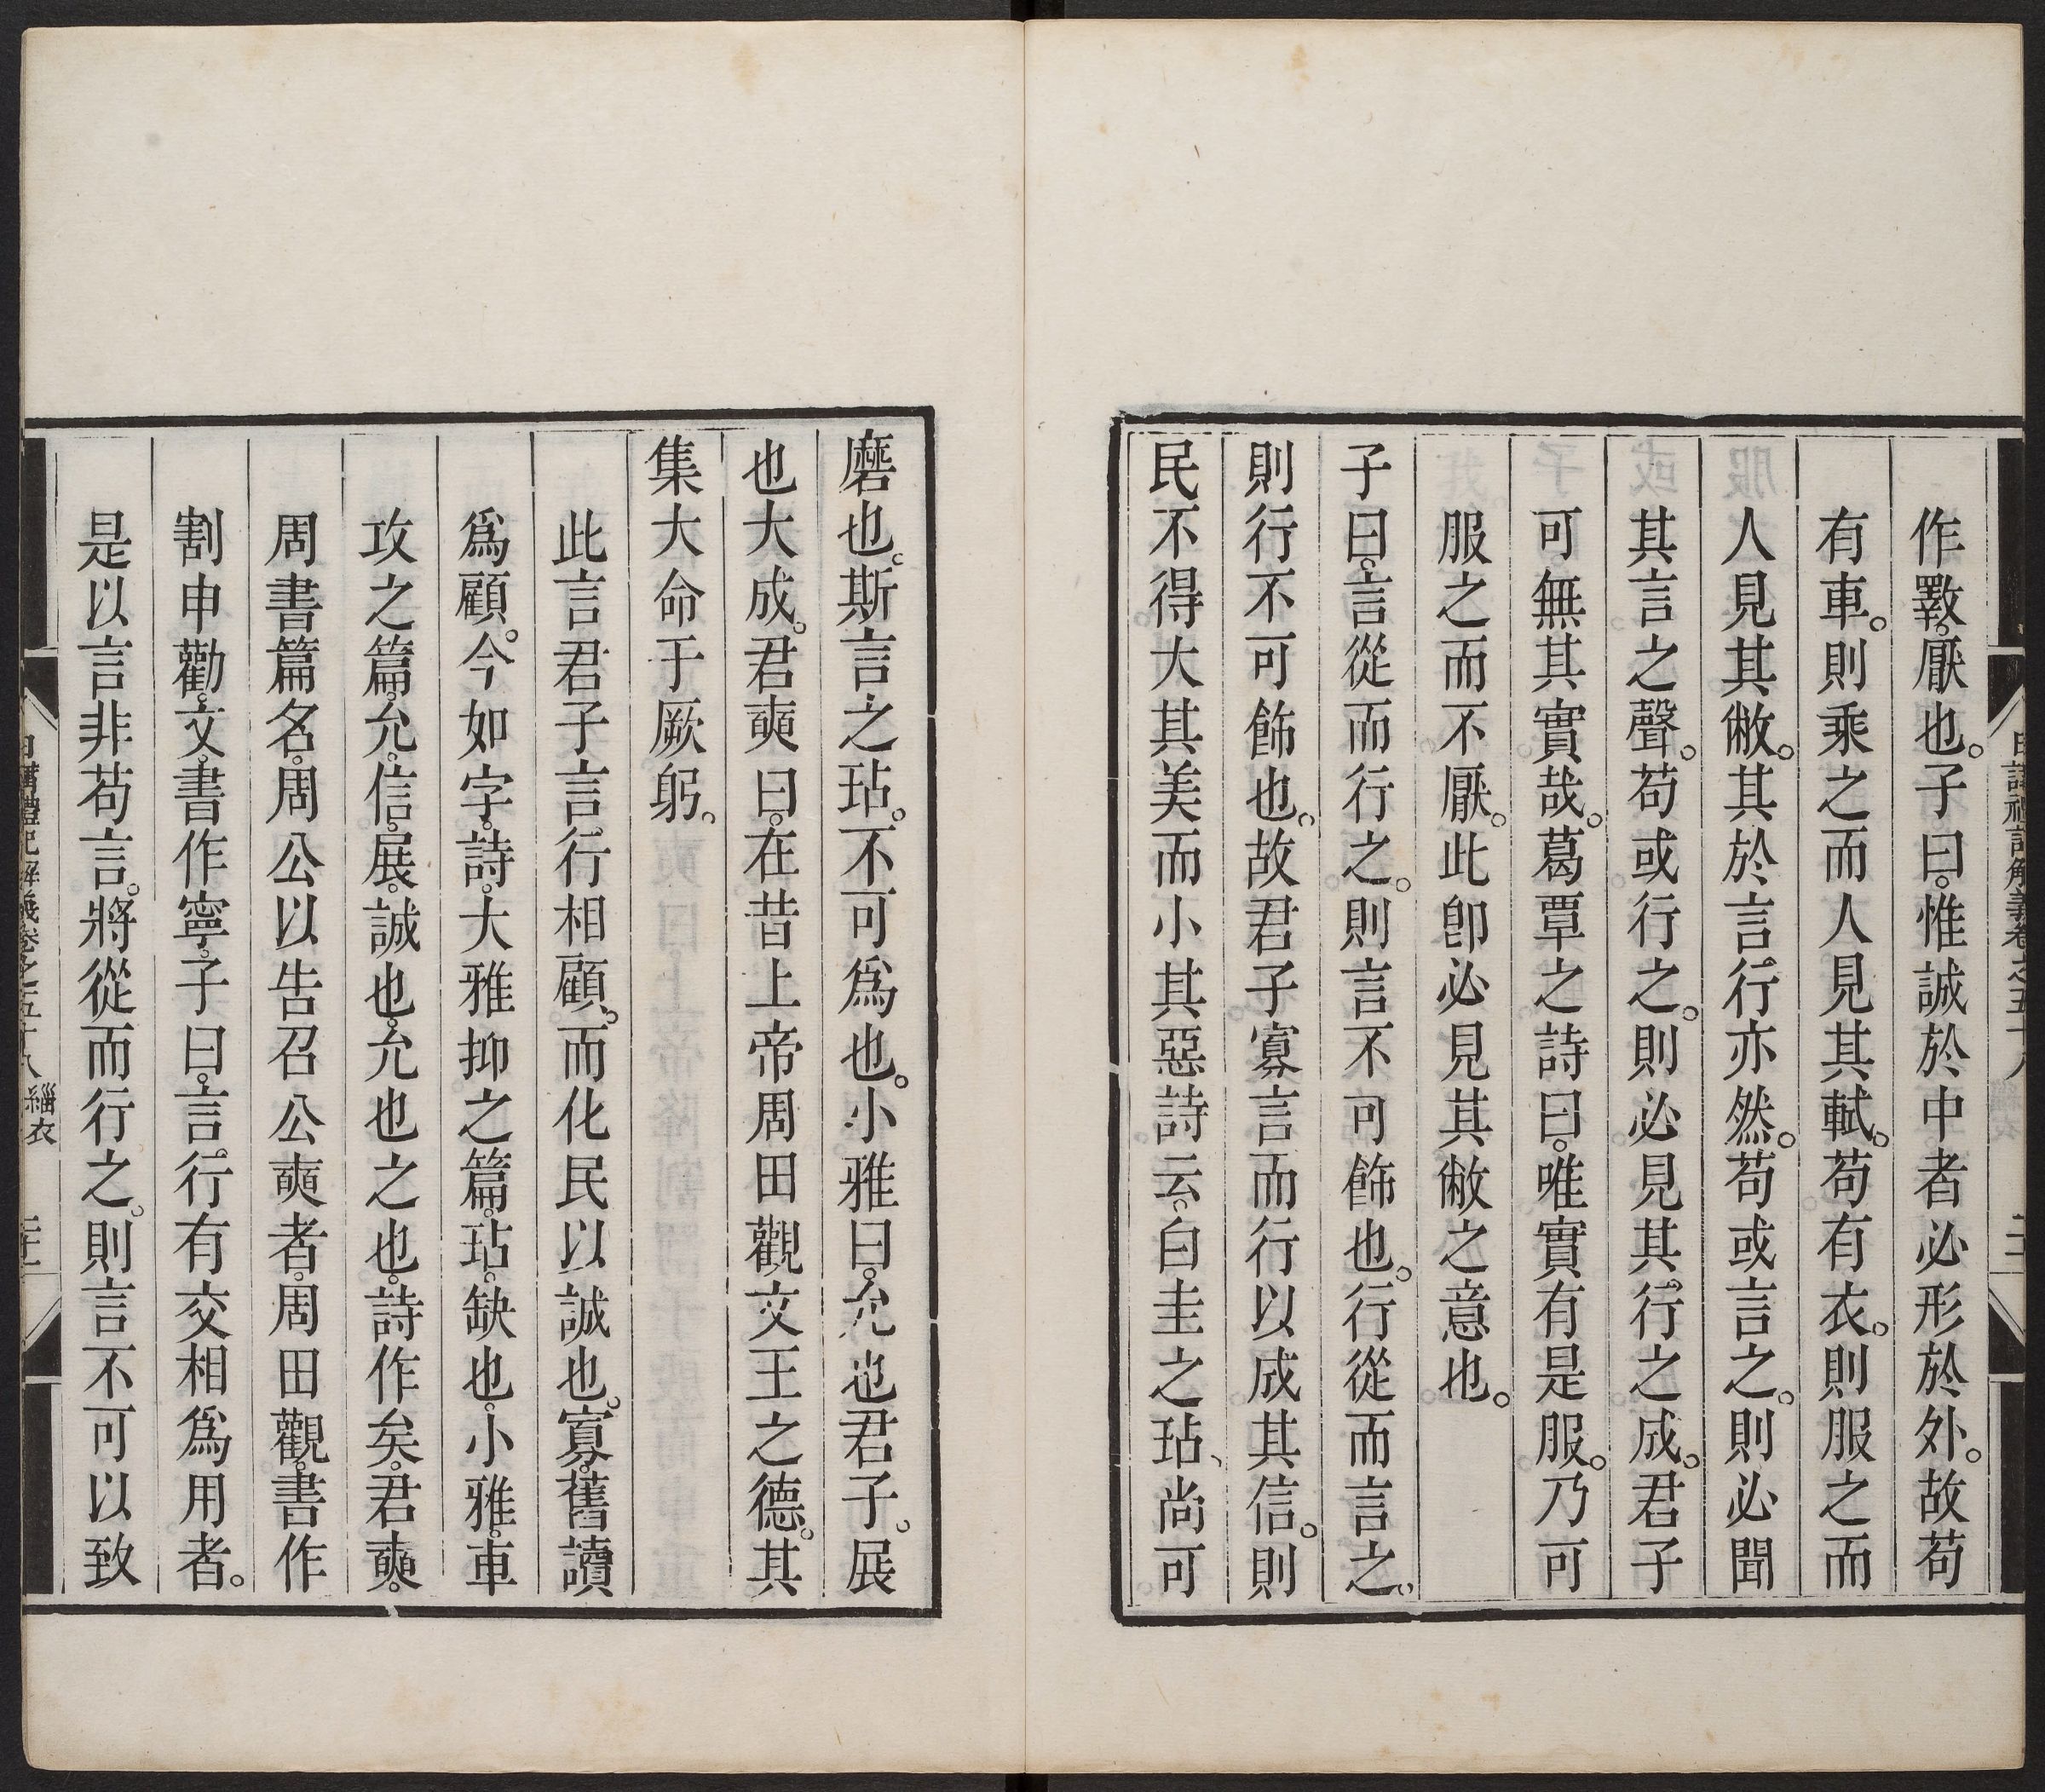 作斁。厭也。子曰。惟誠於中者必形於外。故苟
有車。則乘之而人見其軾。苟有衣。則服之而
人見其敝。其於言行亦然。苟或言之。則必聞
其言之聲。苟或行之。則必見其行之成。君子
可無其實哉。葛覃之詩曰。唯實有是服。乃可
服之而不厭。此卽必見其敝之意也。
子曰。言從而行之。則言不可飾也。行從而言之。
則行不可飾也。故君子寡言而行以成其信。則
民不得大其美而小其惡詩云。白圭之玷、尚可
磨也。斯言之玷。不可爲也。小雅曰。允也君子。展
也大成。君奭曰。在昔上帝周田觀文王之德。其
集大命于厥躬。
此言君子言行相顧。而化民以誠也。寡。舊讀
爲顧。今如字。詩。大雅抑之篇。玷。缺也。小雅。車
攻之篇。允。信。展。誠也。允也之也。詩作矣。君奭。
周書篇名。周公以告召公奭者。周田觀。書作
割申勸。文。書作寧。子曰。言行有交相爲用者。
是以言非苟言。將從而行之。則言不可以致
日講禮記解義卷之五十八 緇衣